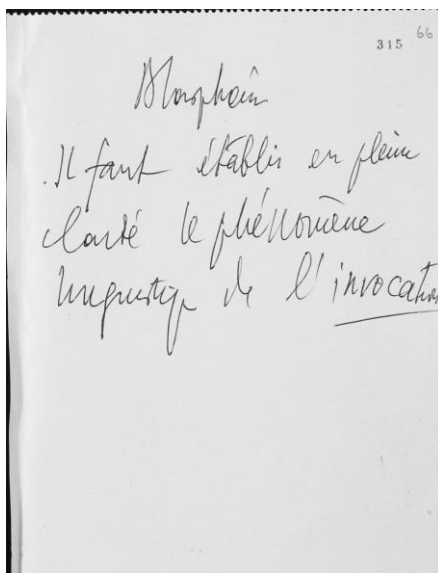 315 66
Blasphém
. Il faut établir en pleine
clarté le phénomène
linguistiq de l'invocation